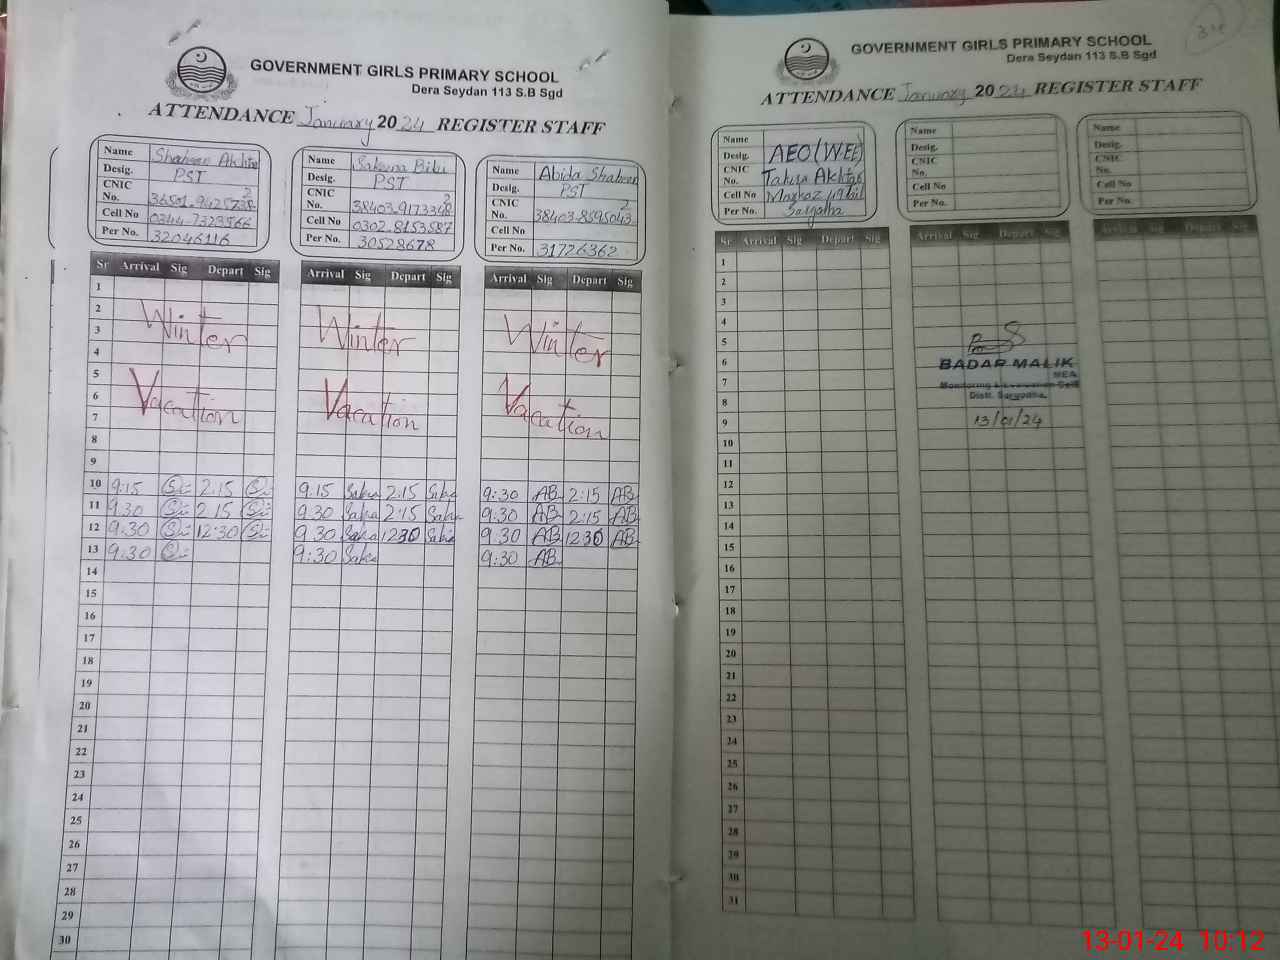 GOVERNMENT GIRLS PRIMARY SCHOOL
Dera Seydan 113 S.B Sgd
ATTENDANCE January 2024 REGISTER STAFF
Name Shaheen Akhter
Desig. PST
CNIC 2
No.
Cell No 0344-7323566
Per No. 32046116
Name Sakeena Bibi
Desig. PST
CNIC 2
No. 38403-9173348
Cell No 0302-8153587
Per No. 30528678
Name Abida Shaheen
Desig. PST
CNIC 2
No. 38403-8595043
Cell No
Per No. 31726362
Sr Arrival Sig Depart Sig Arrival Sig Depart Sig Arrival Sig Depart Sig
1
2
3 Winter Winter Winter
4
5
6 Vacation Vacation Vacation
7
8
9
10 9:15 2:15 9:15 Saka 2:15 Saka 9:30 AB 2:15 AB
11 9:30 2:15 9:30 Saka 2:15 Saka 9:30 AB 2:15 AB
12 9:30 12:30 9:30 Saka 1230 Saka 9:30 AB 1230 AB
13 9:30 9:30 Saka 9:30 AB
14
15
16
17
18
19
20
21
22
23
24
25
26
27
28
29
30
GOVERNMENT GIRLS PRIMARY SCHOOL
Dera Seydan 113 S.B Sgd
ATTENDANCE January 2024 REGISTER STAFF
Name
Desig. AEO (WEE)
CNIC
No. Tahira Akhtar
Cell No Markaz
Per No. Sargodha
Name
Desig.
CNIC
No.
Cell No
Per No.
Name
Desig.
CNIC
No.
Cell No
Per No.
Sr Arrival Sig Depart Sig Arrival Sig Depart Sig Arrival Sig Depart Sig
1
2
3
4
5
6
7
8
9
10
11
12
13
14
15
16
17
18
19
20
21
22
23
24
25
26
27
28
29
30
31
BADAR MALIK
MEA
Monitoring & Evaluation Cell
Distt. Sargodha.
13/01/24
13-01-24 10:12